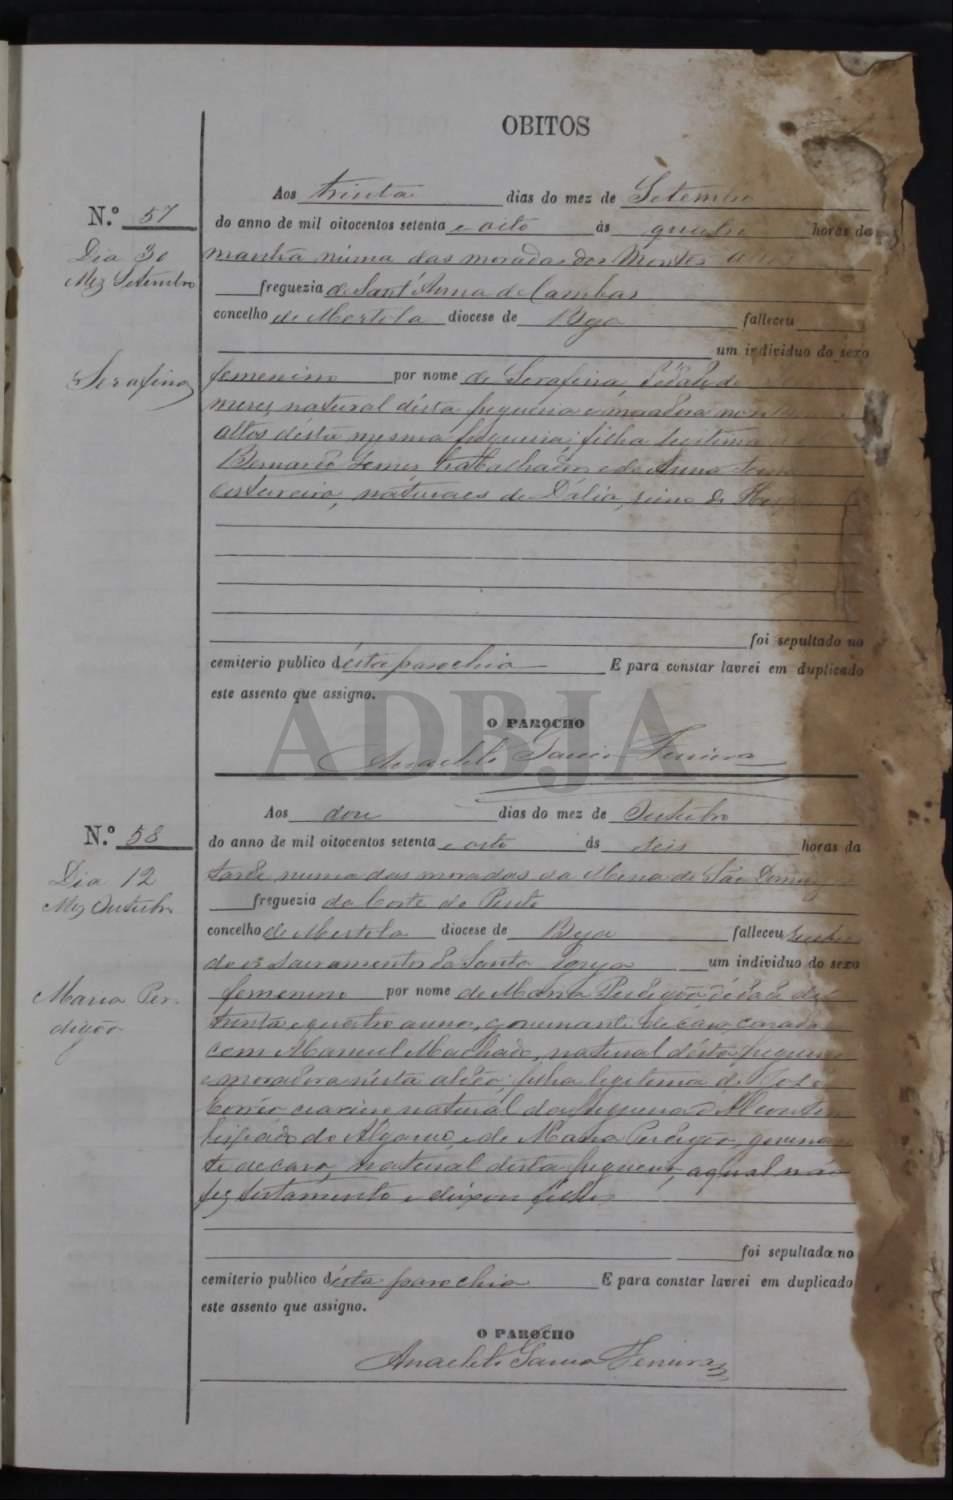 OBITOS
N.º 57
Dia 30
Mez Setembro
Serafina
Aos trinta dias do mez de Setembro
do anno de mil oitocentos setenta e oito ás quatro horas da
manhã numa das moradas dos Montes Altos
freguezia de Sant'Anna de Cambas
concelho de Mertola diocese de Beja falleceu
um individuo do sexo
femenino por nome de Serafina idade de
mezes natural désta freguezia e moradora
altos désta mesma freguezia; filha legitima
Bernardo Gomes trabalhador e de Anna
costureira, naturaes de reino de
foi sepultado no
cemiterio publico désta parochia E para constar lavrei em duplicado
este assento que assigno.
O PAROCHO
Anacleto Garcia Ferreira
ADBJA
N.º 58
Dia 12
Mez Outubro
Maria Per-
digão
Aos doze dias do mez de Outubro
do anno de mil oitocentos setenta e oito ás seis horas da
tarde numa das moradas da Mina de São Domingos
freguezia do Corte do Pinto
concelho de Mertola diocese de Beja falleceu
sacramentos da Santa Igreja um individuo do sexo
femenino por nome de Maria Perdigão, idade de
trinta e quatro annos, governante de casa, casada
com Manuel Machado, natural désta freguezia
e moradora nésta aldeia; filha legitima de José
natural da freguezia
do Algarve, e de Maria Perdigão, governan-
te de casa, natural désta freguezia, a qual não
fez testamento e deixou filhos
foi sepultada no
cemiterio publico désta parochia E para constar lavrei em duplicado
este assento que assigno.
O PAROCHO
Anacleto Garcia Ferreira